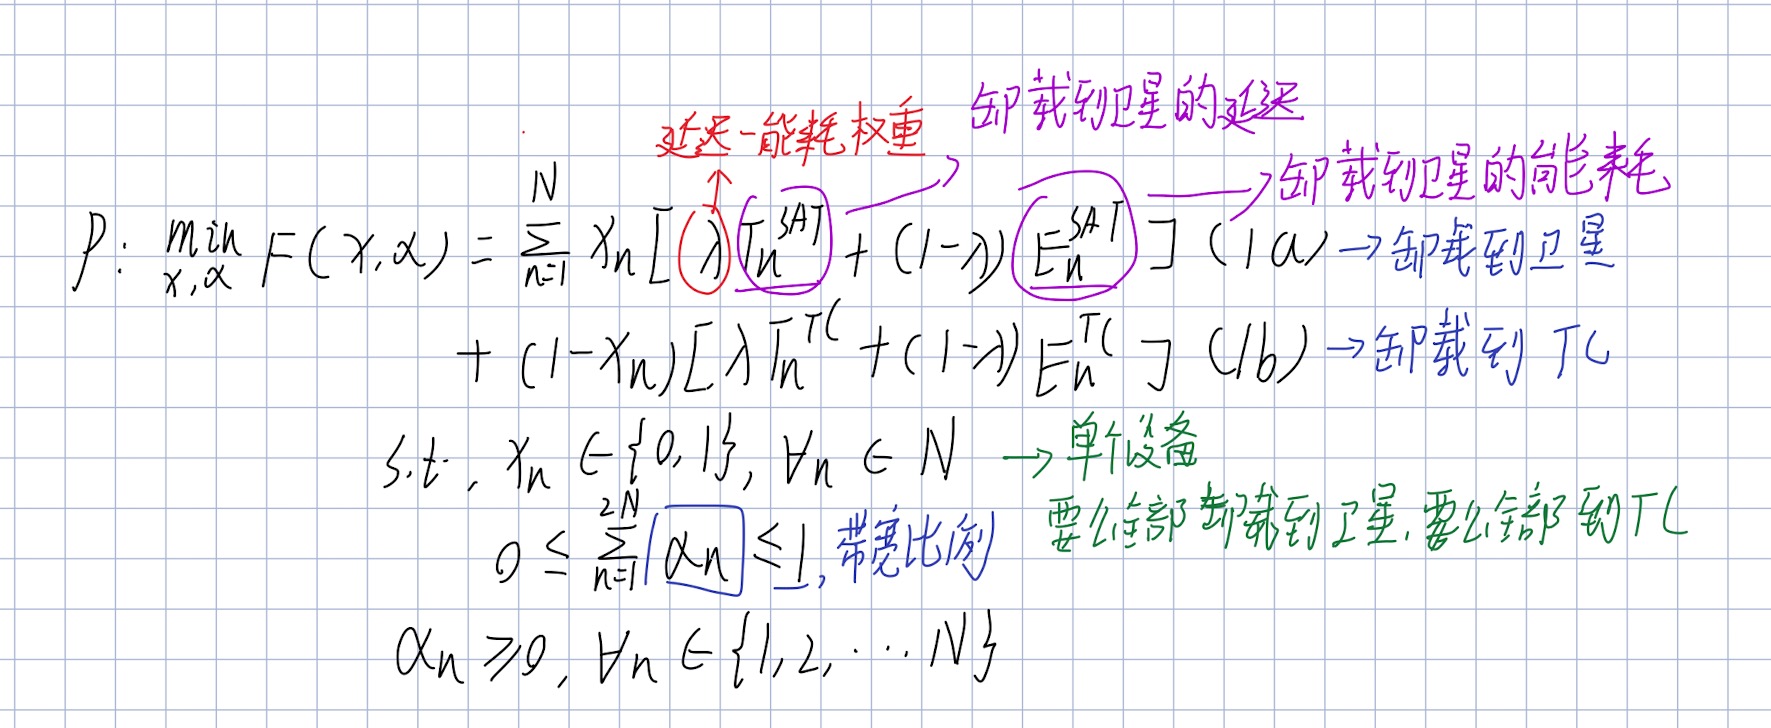 延迟-能耗权重
卸载到卫星的延迟
卸载到卫星的能耗
P: min x,α F(x,α) = Σ_{n=1}^{N} x_n [λ T_n^{SAT} + (1-λ) E_n^{SAT}] (1a) → 卸载到卫星
+ (1-x_n)[λ T_n^{TC} + (1-λ) E_n^{TC}] (1b) → 卸载到 TC
s.t. x_n ∈ {0,1}, ∀n ∈ N → 单个设备
要么全部卸载到卫星,要么全部到TC
0 ≤ Σ_{n=1}^{2N} α_n ≤ 1, 带宽比例
α_n ≥ 0, ∀n ∈ {1,2,…N}